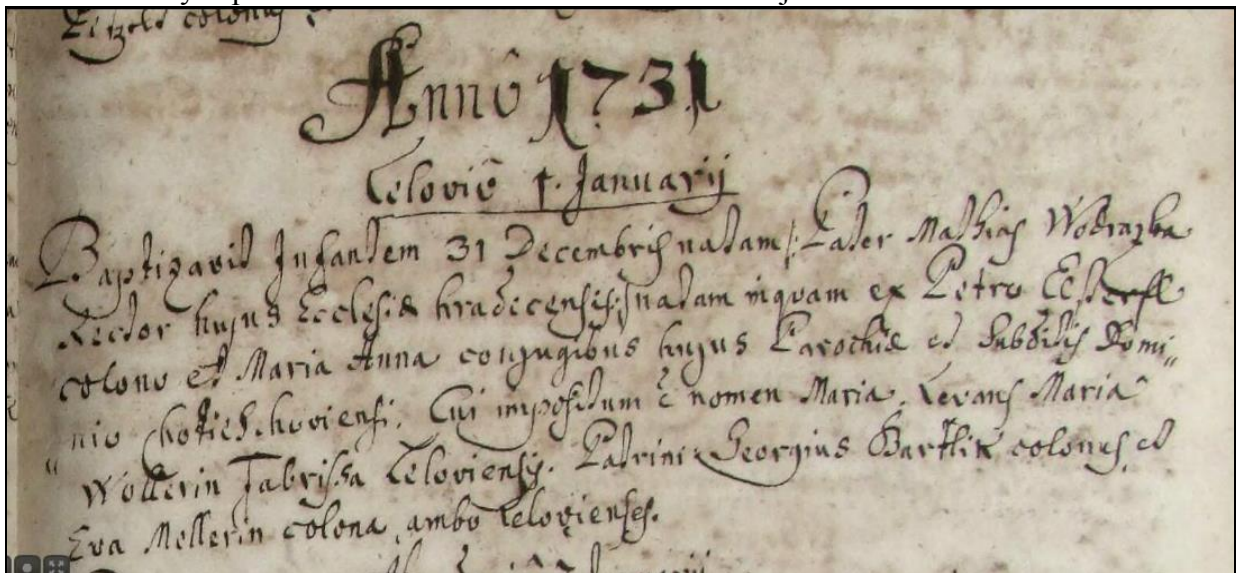 colonus
Annô 1731
Celoviê 1. Januarij
Baptizavit Infantem 31 Decembris natam /: Pater Mathias Wodrazka
Rector hujus Ecclesiæ hradecensis :/ natam inquam ex Petro
colono et Maria Anna conjugibus hujus Parochiæ et subditis Domi„
„nio Chotieschoviensi. Cui impositum ê nomen Maria. Levans Mariâ
Wollerin Fabrissa Celoviensis. Patrini Georgius Bartlik colonus, et
Eva Mellerin colona, ambo Celovienses.